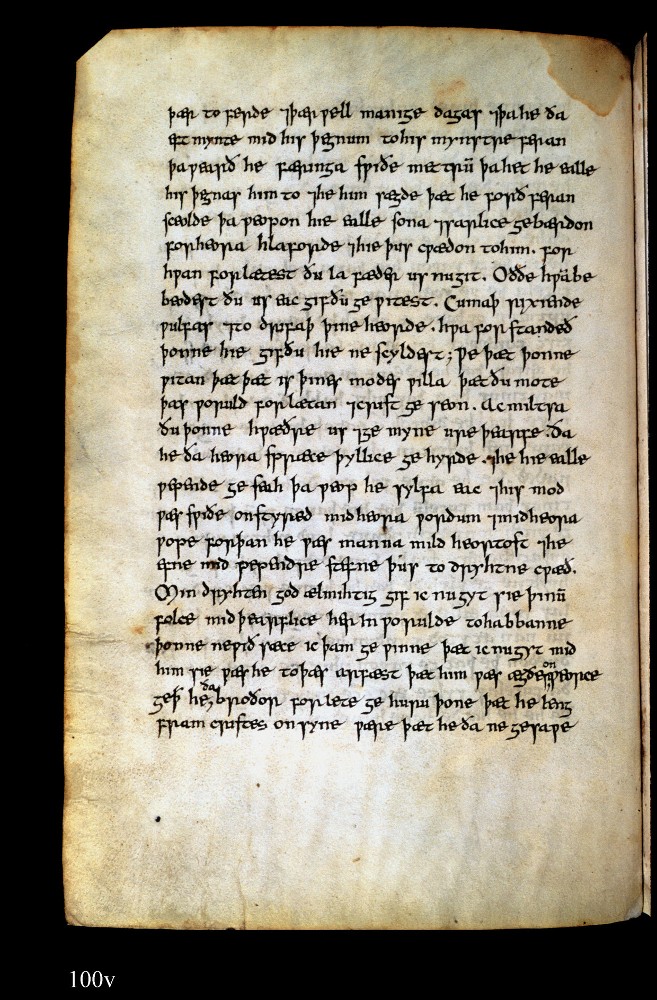 þær to ferde ⁊þær ƿell manige dagas ⁊þa he ða
eft mynte mid his þegnum tohis mynstre feran
þa ƿearð he færinga sƿiðe mettrū þa het he ealle
his þegnas him to ⁊he him sægde þæt he forð feran
sceolde þa ƿeopon hie ealle sona ⁊sarlice gebærdon
for heora hlaforde ⁊hie þus cƿædon tohim. for
hƿan forlætest ðu la fæder us nu git. Oððe hƿā be
beodest ðu us eac gif ðu ge ƿitest. Cumaþ ryxiende
ƿulfas ⁊to drifaþ þine heorde. hƿa forstandeð
þonne hie gif ðu hie ne scyldest; Ƿe þæt þonne
ƿitan þæt þæt is þines modes ƿilla þæt ðu mote
þas ƿoruld forlætan ⁊crist ge seon. Ac miltsa
ðu þonne hƿæðre us ⁊ge myne ure þearfe. ða
he ða heora spræce þyllice ge hyrde. ⁊he hie ealle
ƿepende ge seah þa ƿeop he sylfa eac ⁊his mod
ƿæs sƿiðe onstyred mid heora ƿordum ⁊mid heora
ƿope forþan he ƿæs manna mild heortost ⁊he
efne mid ƿependre stefne þus to dryhtne cƿæð.
Min dryhten god ælmihtig gif ic nu gyt sie þinū
folce midþearflice her in ƿorulde tohabbanne
þonne neƿið sace ic þam ge ƿinne þæt ic nu gyt mid
him sie ƿæs he toþæs arfæst þæt him ƿæs
broðor forlete ge huru þone þæt he leng
fram cristes onsyne ƿære þæt he ða ne gesaƿe